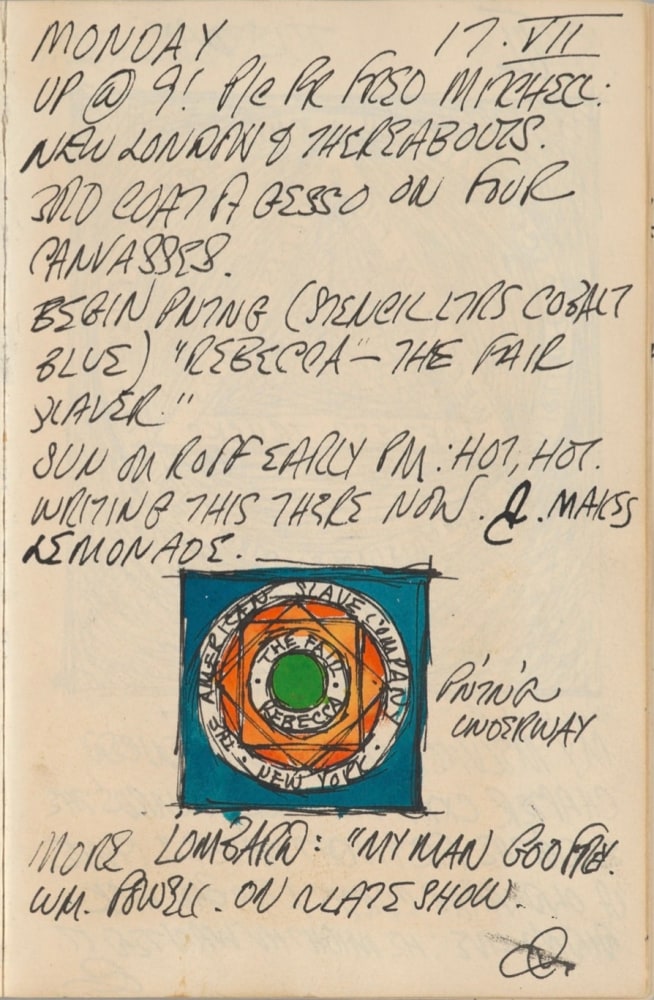 MONDAY 17.VII
UP @ 9! P/C FR FRED MITCHELL:
NEW LONDON & THEREABOUTS.
3RD COAT OF GESSO ON FOUR
CANVASSES.
BEGIN PNTNG (STENCIL LTRS COBALT
BLUE) "REBECCA" – THE FAIR
SLAVER."
SUN ON ROOF EARLY PM: HOT, HOT.
WRITING THIS THERE NOW. MAKES
LEMONADE.
THE AMERICAN SLAVE COMPANY
· NEW YORK ·
· THE FAIR ·
REBECCA
PNT'N'G
UNDERWAY
MORE LOMBARD: "MY MAN GODFREY.
WM. POWELL. ON LATE SHOW.